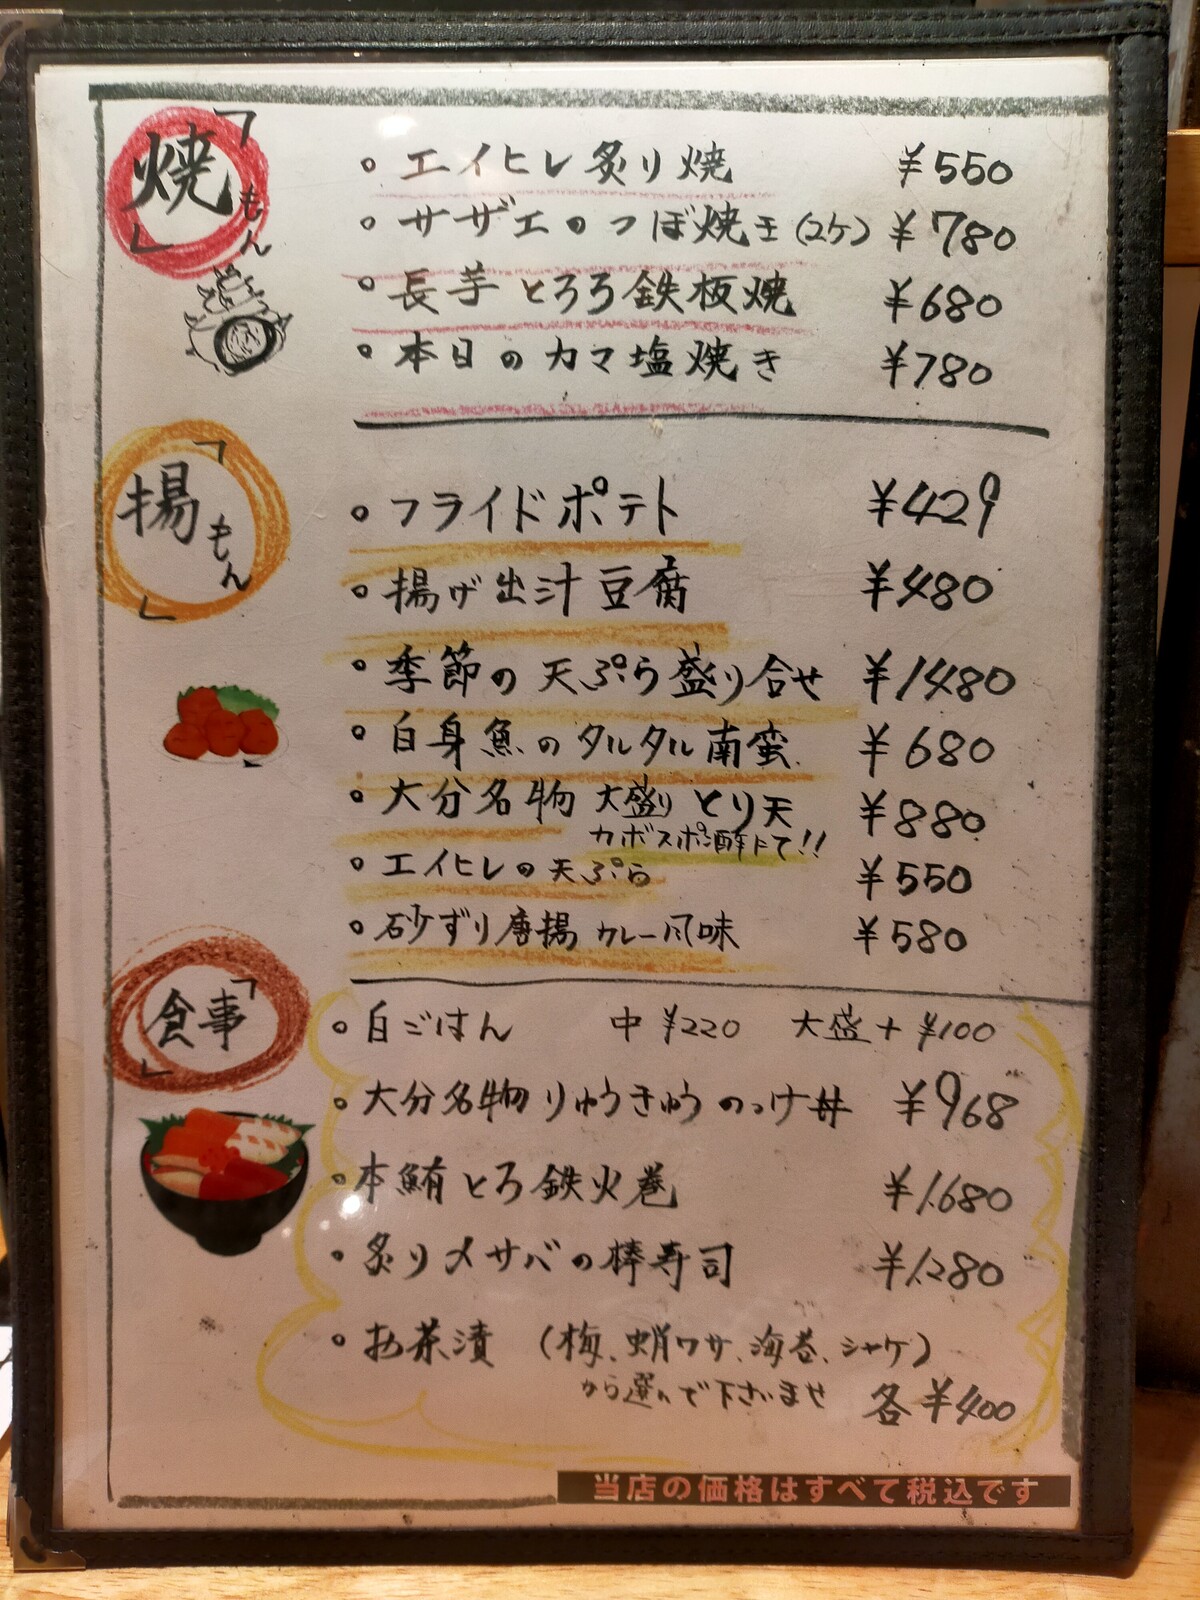 「焼もん」
◦ エイヒレ炙り焼 ¥550
◦ サザエのつぼ焼き(2ケ) ¥780
◦ 長芋とろろ鉄板焼 ¥680
◦ 本日のカマ塩焼き ¥780
「揚もん」
◦ フライドポテト ¥429
◦ 揚げ出汁豆腐 ¥480
◦ 季節の天ぷら盛り合せ ¥1480
◦ 白身魚のタルタル南蛮 ¥680
◦ 大分名物 大盛り とり天 ¥880
カボスポン酢にて!!
◦ エイヒレの天ぷら ¥550
◦ 砂ずり唐揚 カレー風味 ¥580
「食事」
◦ 白ごはん 中 ¥220 大盛+¥100
◦ 大分名物りゅうきゅうのっけ丼 ¥968
◦ 本鮪とろ鉄火巻 ¥1.680
◦ 炙りメサバの棒寿司 ¥1.280
◦ お茶漬 (梅、蛸ワサ、海苔、シャケ)
から選んで下さいませ 各¥400
当店の価格はすべて税込です